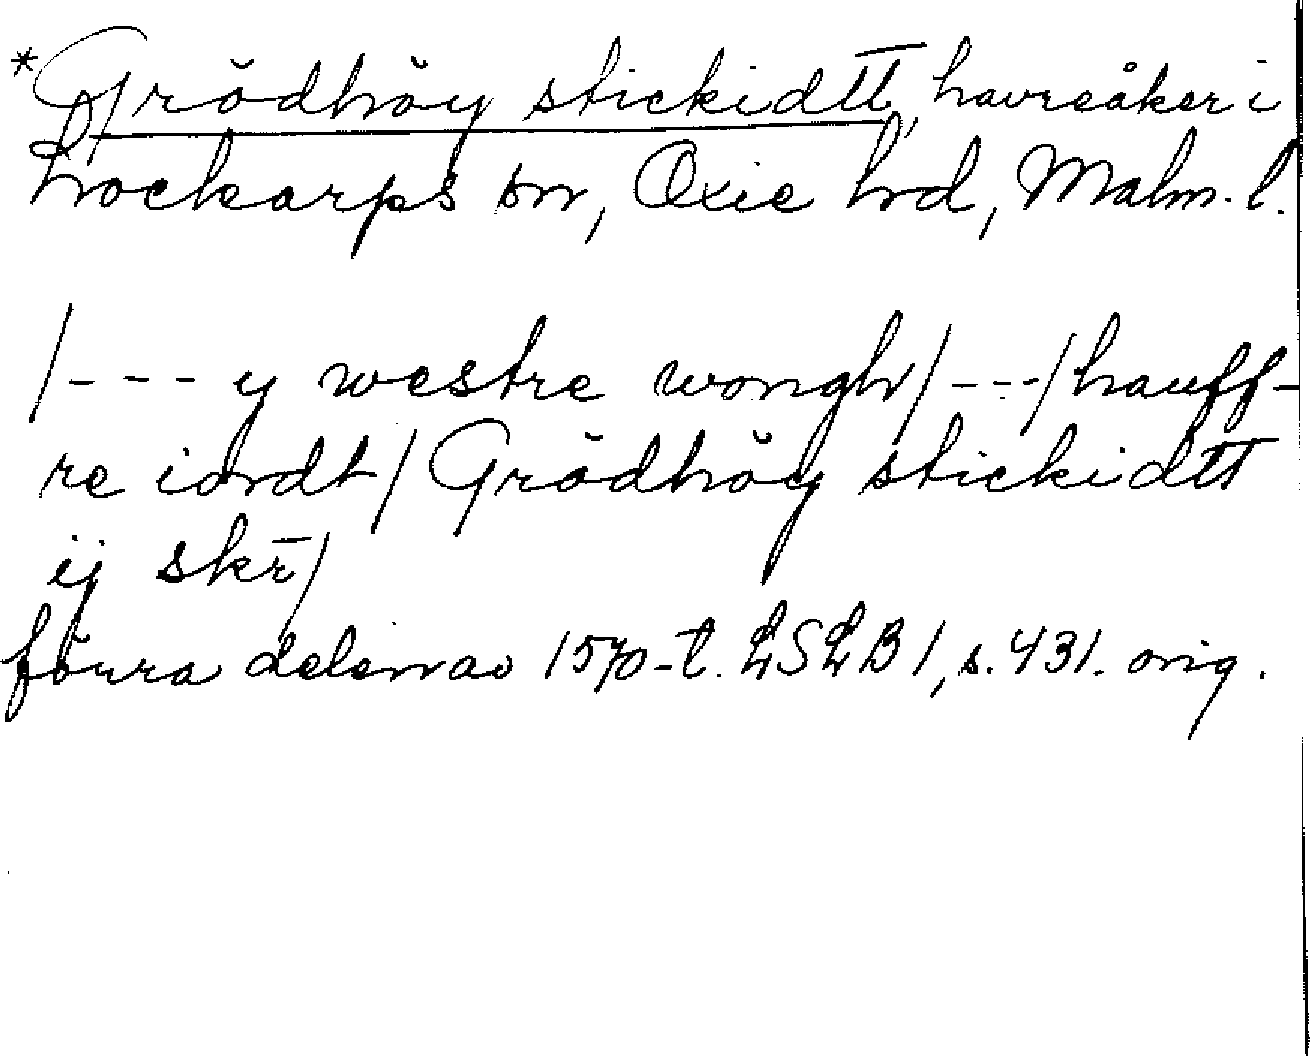 *Grödhöy stickidtt, havreåker i
Lockarps sn, Oxie hd, Malm. l.
/--- y westre wongh/---/hauff-
re iordt/Grödhöy stickidtt
ij skr̄/
förra delen av 1570-t. LSLB 1, s. 431. orig.